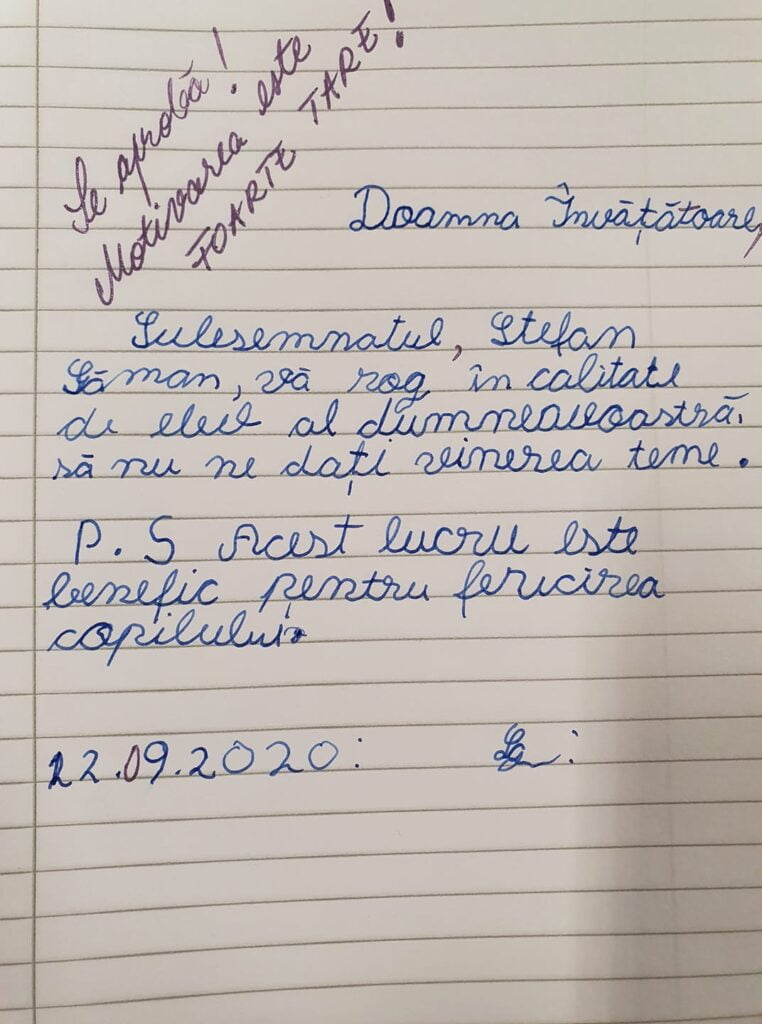 Se aprobă!
Motivarea este
FOARTE TARE!
Doamna Învățătoare,
Subsemnatul, Ștefan
Găman, vă rog în calitate
de elev al dumneavoastră,
să nu ne dați vinerea teme.
P.S Acest lucru este
benefic pentru fericirea
copilului.
22.09.2020: